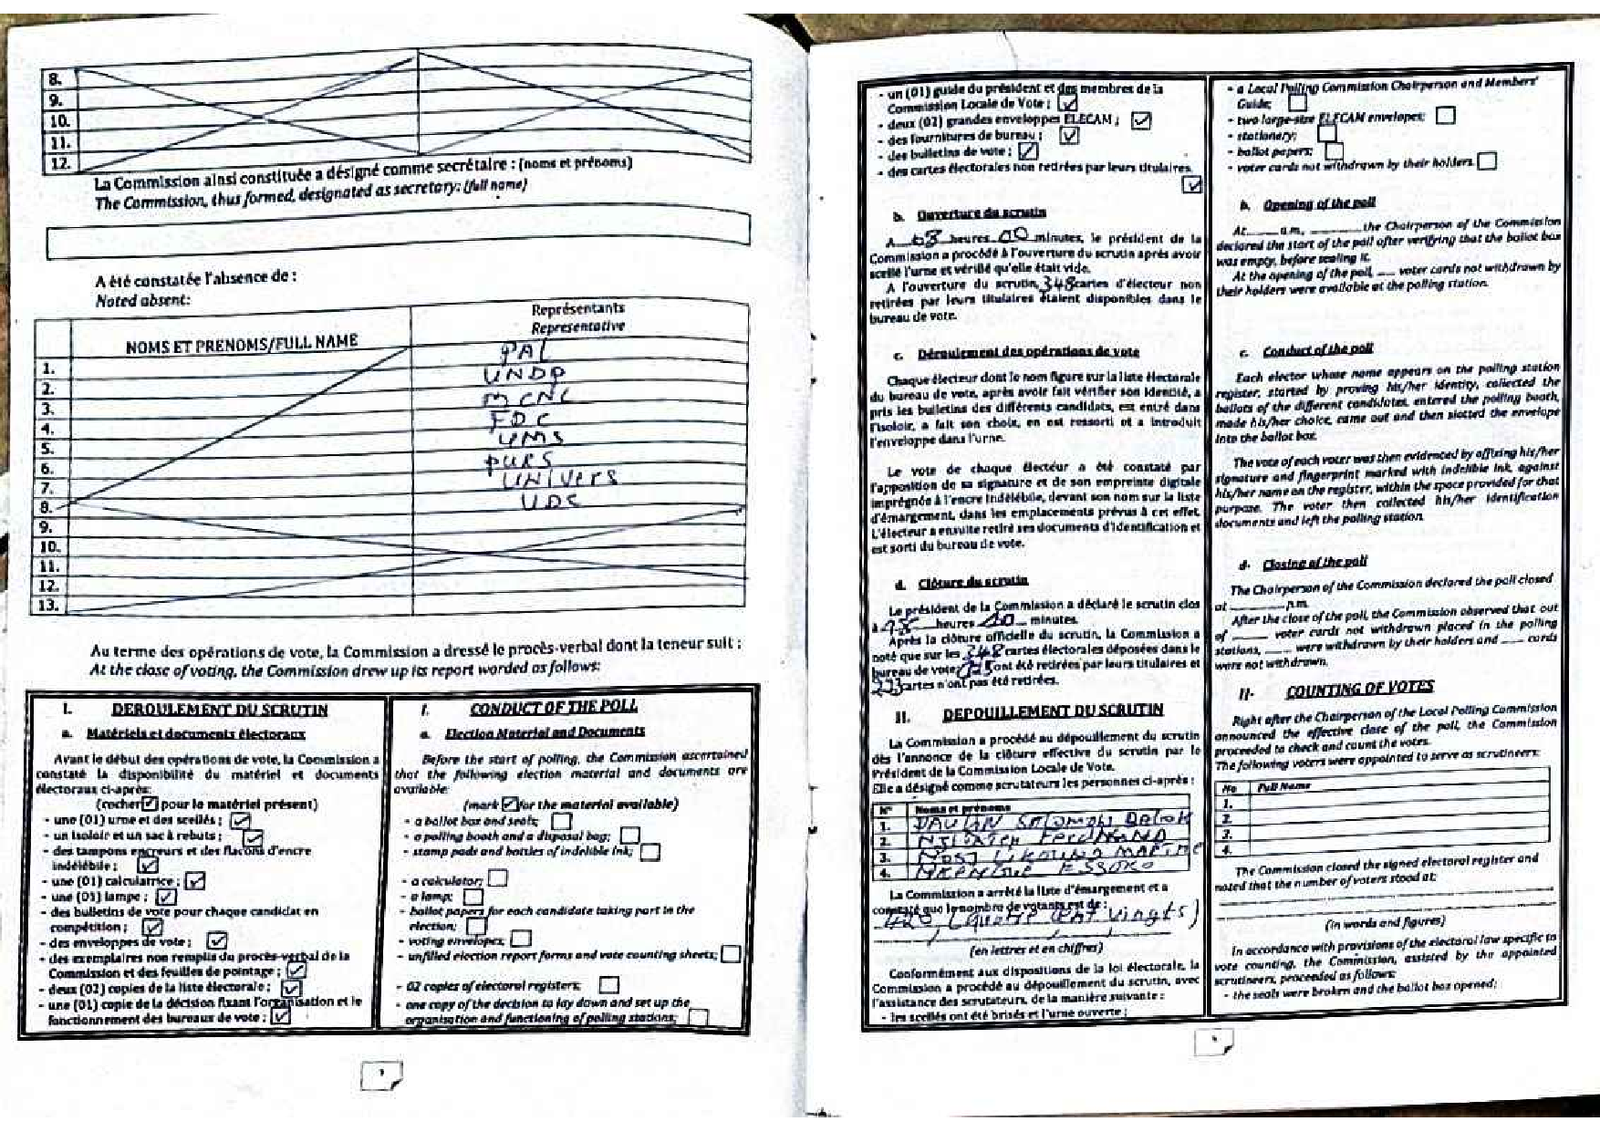 8.
9.
10.
11.
12.
La Commission ainsi constituée a désigné comme secrétaire : (noms et prénoms)
The Commission, thus formed, designated as secretary: (full name)
A été constatée l'absence de :
Noted absent:
NOMS ET PRENOMS/FULL NAME
Représentants
Representative
1. PAL
2. UNDP
3. MCNC
4. FDC
5. UMS
6. PURS
7. UNIVERS
8. UDC
9.
10.
11.
12.
13.
Au terme des opérations de vote, la Commission a dressé le procès-verbal dont la teneur suit :
At the close of voting, the Commission drew up its report worded as follows:
I. DEROULEMENT DU SCRUTIN
a. Matériels et documents électoraux
Avant le début des opérations de vote, la Commission a
constaté la disponibilité du matériel et documents
électoraux ci-après:
(cocher ☑ pour le matériel présent)
- une (01) urne et des scellés ; ☑
- un isoloir et un sac à rebuts ; ☑
- des tampons encreurs et des flacons d'encre
indélébile ; ☑
- une (01) calculatrice ; ☑
- une (01) lampe ; ☑
- des bulletins de vote pour chaque candidat en
compétition ; ☑
- des enveloppes de vote ; ☑
- des exemplaires non remplis du procès-verbal de la
Commission et des feuilles de pointage ; ☑
- deux (02) copies de la liste électorale ; ☑
- une (01) copie de la décision fixant l'organisation et le
fonctionnement des bureaux de vote ; ☑
I. CONDUCT OF THE POLL
a. Election Material and Documents
Before the start of polling, the Commission ascertained
that the following election material and documents are
available:
(mark ☑ for the material available)
- a ballot box and seals; ☐
- a polling booth and a disposal bag; ☐
- stamp pads and bottles of indelible ink; ☐
- a calculator; ☐
- a lamp; ☐
- ballot papers for each candidate taking part in the
election; ☐
- voting envelopes; ☐
- unfilled election report forms and vote counting sheets; ☐
- 02 copies of electoral registers; ☐
- one copy of the decision to lay down and set up the
organisation and functioning of polling stations; ☐
- un (01) guide du président et des membres de la
Commission Locale de Vote ; ☑
- deux (02) grandes enveloppes ELECAM ; ☑
- des fournitures de bureau ; ☑
- des bulletins de vote ; ☑
- des cartes électorales non retirées par leurs titulaires.
☑
b. Ouverture du scrutin
A 08 heures 00 minutes, le président de la
Commission a procédé à l'ouverture du scrutin après avoir
scellé l'urne et vérifié qu'elle était vide.
A l'ouverture du scrutin, 348 cartes d'électeur non
retirées par leurs titulaires étaient disponibles dans le
bureau de vote.
c. Déroulement des opérations de vote
Chaque électeur dont le nom figure sur la liste électorale
du bureau de vote, après avoir fait vérifier son identité, a
pris les bulletins des différents candidats, est entré dans
l'isoloir, a fait son choix, en est ressorti et a introduit
l'enveloppe dans l'urne.
Le vote de chaque électeur a été constaté par
l'apposition de sa signature et de son empreinte digitale
imprégnée à l'encre indélébile, devant son nom sur la liste
d'émargement, dans les emplacements prévus à cet effet.
L'électeur a ensuite retiré ses documents d'identification et
est sorti du bureau de vote.
d. Clôture du scrutin
Le président de la Commission a déclaré le scrutin clos
à heures minutes.
Après la clôture officielle du scrutin, la Commission a
noté que sur les 348 cartes électorales déposées dans le
bureau de vote, 125 ont été retirées par leurs titulaires et
223 cartes n'ont pas été retirées.
II. DEPOUILLEMENT DU SCRUTIN
La Commission a procédé au dépouillement du scrutin
dès l'annonce de la clôture effective du scrutin par le
Président de la Commission Locale de Vote.
Elle a désigné comme scrutateurs les personnes ci-après :
N° Noms et prénoms
1. SALOMON
2. FERDINAND
3. LIKOUND
4. ESSOKO
La Commission a arrêté la liste d'émargement et a
constaté que le nombre de votants est de :
(quatre cent vingts)
(en lettres et en chiffres)
Conformément aux dispositions de la loi électorale, la
Commission a procédé au dépouillement du scrutin, avec
l'assistance des scrutateurs, de la manière suivante :
- les scellés ont été brisés et l'urne ouverte ;
- a Local Polling Commission Chairperson and Members'
Guide; ☐
- two large-size ELECAM envelopes; ☐
- stationery; ☐
- ballot papers; ☐
- voter cards not withdrawn by their holders. ☐
b. Opening of the poll
At ____ a.m, ____ the Chairperson of the Commission
declared the start of the poll after verifying that the ballot box
was empty, before sealing it.
At the opening of the poll, ____ voter cards not withdrawn by
their holders were available at the polling station.
c. Conduct of the poll
Each elector whose name appears on the polling station
register, started by proving his/her identity, collected the
ballots of the different candidates, entered the polling booth,
made his/her choice, came out and then slotted the envelope
into the ballot box.
The vote of each voter was then evidenced by affixing his/her
signature and fingerprint marked with indelible ink, against
his/her name on the register, within the space provided for that
purpose. The voter then collected his/her identification
documents and left the polling station.
d. Closing of the poll
The Chairperson of the Commission declared the poll closed
at ____ p.m.
After the close of the poll, the Commission observed that out
of ____ voter cards not withdrawn placed in the polling
stations, ____ were withdrawn by their holders and ____ cards
were not withdrawn.
II- COUNTING OF VOTES
Right after the Chairperson of the Local Polling Commission
announced the effective close of the poll, the Commission
proceeded to check and count the votes.
The following voters were appointed to serve as scrutineers:
No Full Name
1.
2.
3.
4.
The Commission closed the signed electoral register and
noted that the number of voters stood at:
(in words and figures)
In accordance with provisions of the electoral law specific to
vote counting, the Commission, assisted by the appointed
scrutineers, proceeded as follows:
- the seals were broken and the ballot box opened;